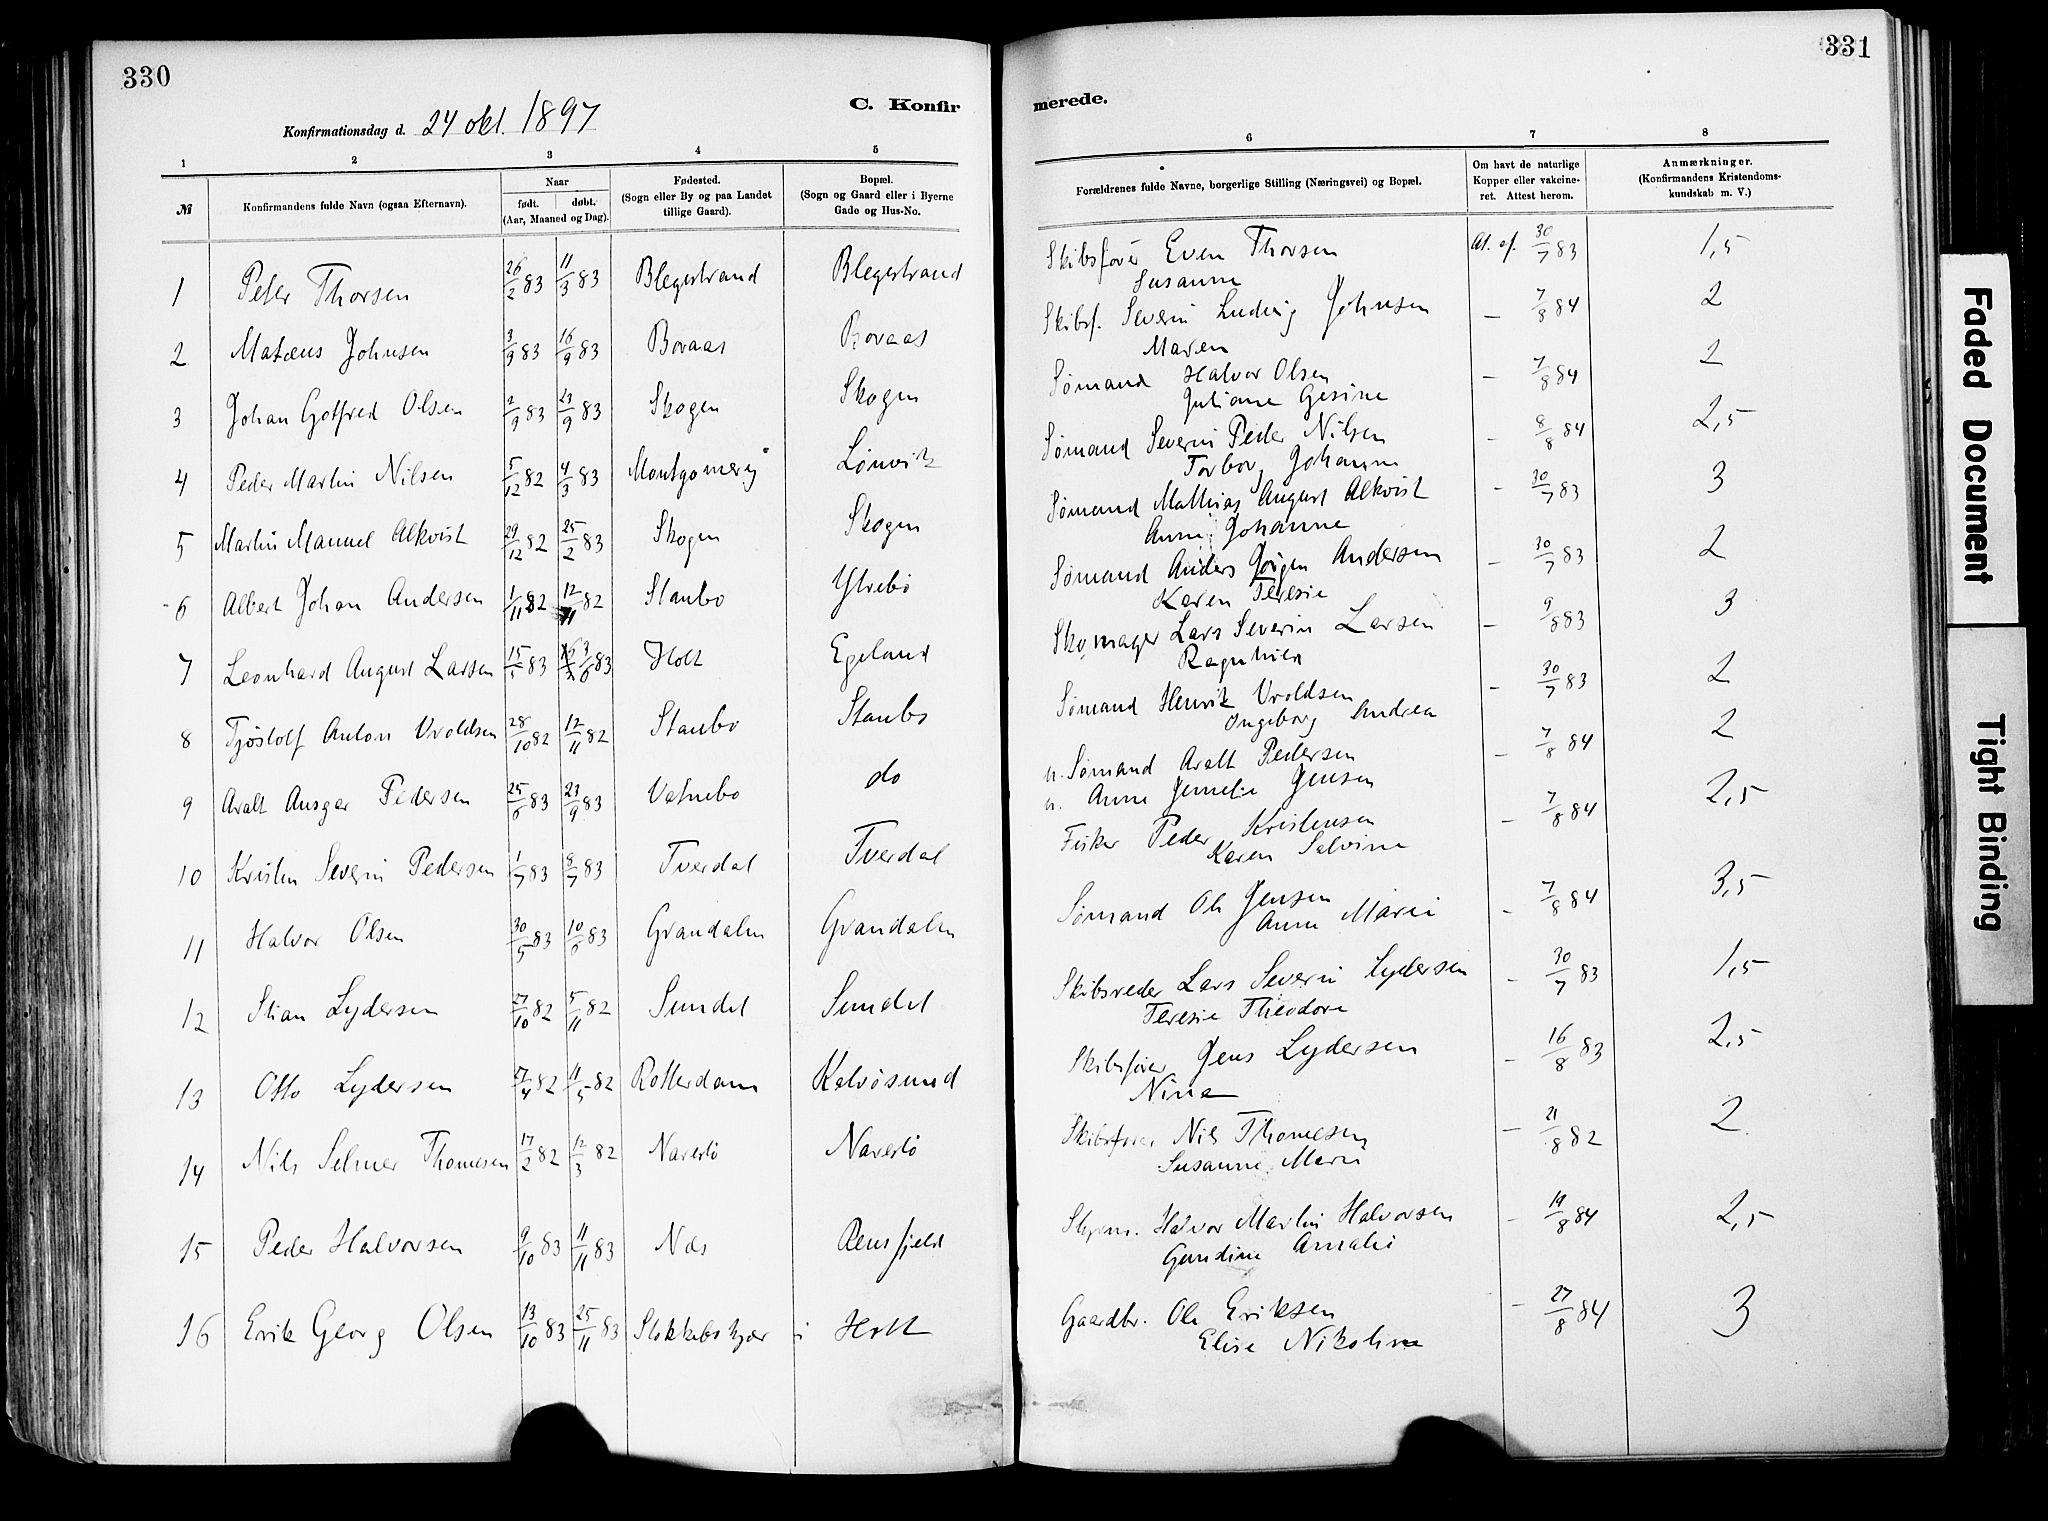 330
331
C. Konfir
merede.
Konfirmationsdag d. 24 okt. 1897
1 2 3 4 5
6 7 8
№
Konfirmandens fulde Navn (ogsaa Efternavn).
Naar
født. døbt.
(Aar, Maaned og Dag).
Fødested.
(Sogn eller By og paa Landet
tillige Gaard).
Bopæl.
(Sogn og Gaard eller i Byerne
Gade og Hus-No.
Forældrenes fulde Navne, borgerlige Stilling (Næringsvei) og Bopæl.
Om havt de naturlige
Kopper eller vakcine-
ret. Attest herom.
Anmærkninger.
(Konfirmandens Kristendoms-
kundskab m. V.)
1 Peter Thorsen 26/2 83 11/3 83 Blegestrand Blegestrand Skibsfører Even Thorsen At. af. 30/7 83 1,5
Susanne
2 Matæus Johnsen 3/9 83 16/9 83 Boraas Boraas Skibsf. Severin Ludvig Johnsen – 7/8 84 2
Maren
3 Johan Gotfred Olsen 2/9 83 23/9 83 Skogen Skogen Sømand Halvor Olsen – 7/8 84 2
Juliane Gesine
4 Peder Martin Nilsen 5/12 82 4/3 83 Montgomery Lønvik Sømand Severin Peder Nilsen – 8/8 84 2,5
Torborg Johanne
5 Martin Manuel Alkvist 29/12 82 25/2 83 Skogen Skogen Sømand Mathias August Alkvist – 30/7 83 3
Anne Johanne
6 Albert Johan Andersen 1/11 82 12/11 82 Staubø Ytrebø Sømand Anders Jørgen Andersen – 30/7 83 2
Karen Teresie
7 Leonhard August Larsen 15/5 83 3/6 83 Holt Egeland Skomager Lars Severin Larsen – 9/8 83 3
Ragnhild
8 Tjøstolf Anton Uvoldsen 28/10 82 12/11 82 Staubo Staubo Sømand Henrik Uvoldsen – 30/7 83 2
Ingeborg Andrea
9 Aralt Ansgar Pedersen 25/6 83 23/9 83 Vatnebo do u. Sømand Aralt Pedersen – 7/8 84 2
u. Anne Jensen
10 Kristen Severin Pedersen 1/7 83 8/7 83 Tverdal Tverdal Fisker Peder Kristensen – 7/8 84 2,5
Karen Salvine
11 Halvor Olsen 30/5 83 10/6 83 Grandalen Grandalen Sømand Ole Jensen – 7/8 84 3,5
Anne Marie
12 Stian Lydersen 27/10 82 5/11 82 Sundet Sundet Skibsreder Lars Severin Lydersen – 30/7 83 1,5
Teresie Theodora
13 Otto Lydersen 7/4 82 11/5 82 Rotterdam Kalvøsund Skibsfører Jens Lydersen – 16/8 83 2,5
Nina
14 Nils Selmer Thomesen 17/2 82 12/3 82 Narestø Narestø Skibsfører Nils Thomesen – 21/8 82 2
Susanne Marie
15 Peder Halvorsen 9/10 83 11/11 83 Næs Rensfjeld Styrm. Halvor Martin Halvorsen – 19/8 84 2,5
Gundine Amalie
16 Erik Georg Olsen 13/10 83 25/11 83 Stokkebskjær i Holt Gaardbr. Ole Eriksen – 27/8 84 3
Elise Nikoline
Faded Document
Tight Binding